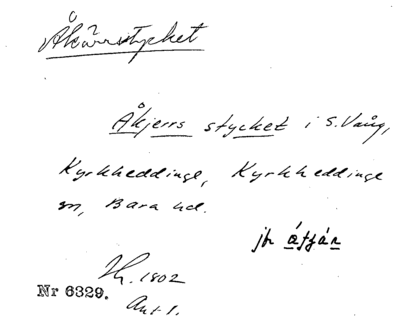 Åkärrstycket
Åkjerrs stycket i S. Vång,
Kyrkheddinge, Kyrkheddinge
sn, Bara hd.
jfr
1802
Nr 6329.
Akt 1.